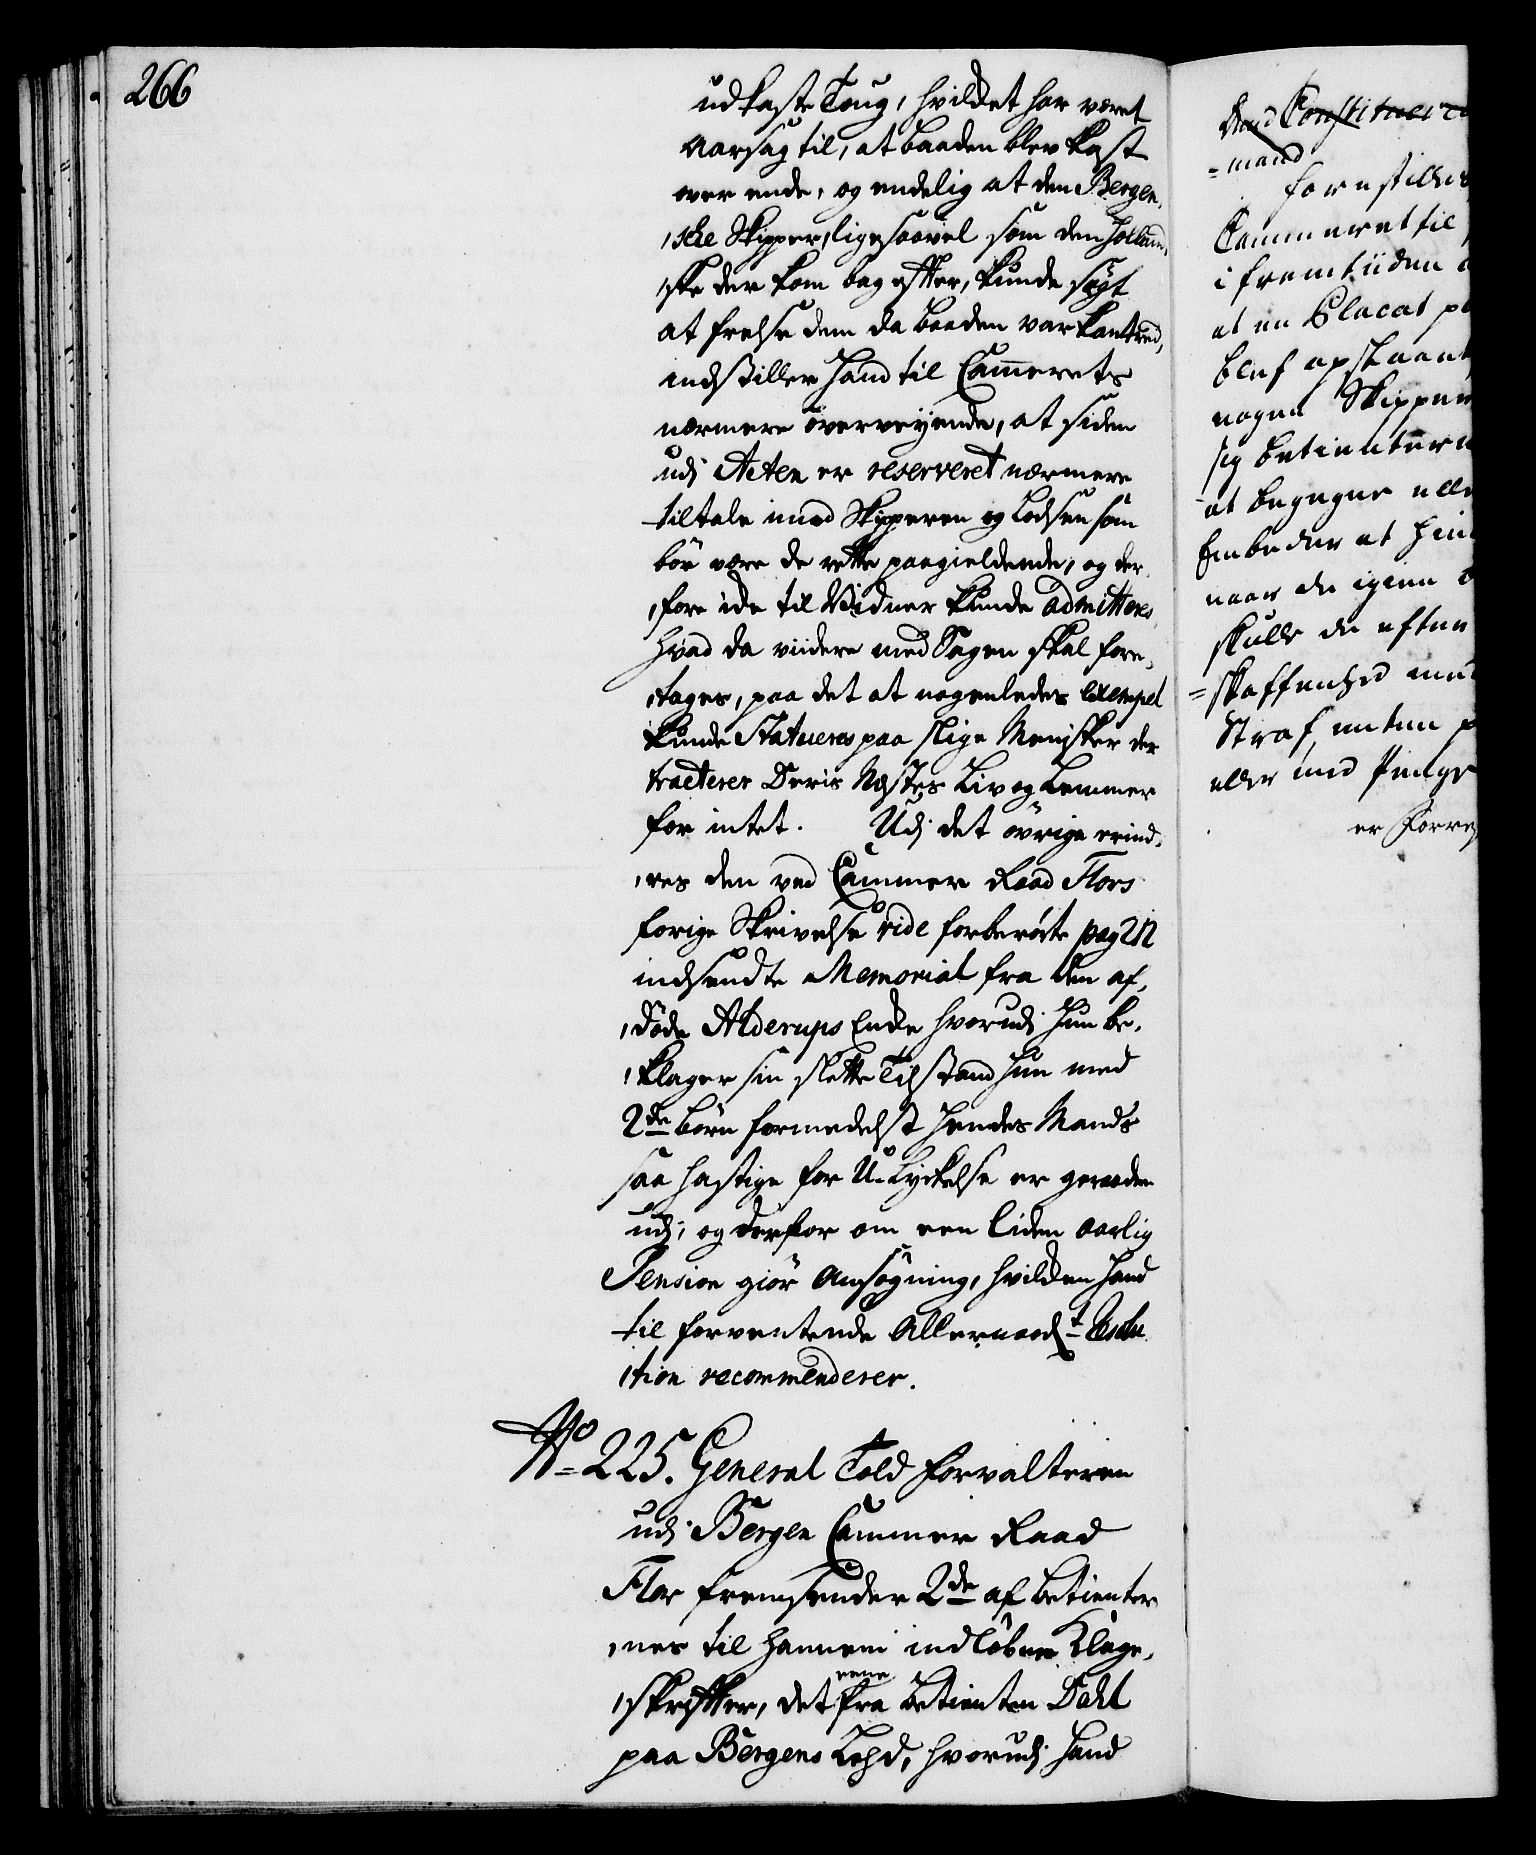 266
udkaste Toug, hvilket har været
Aarsag til, at baaden blev kast
over ende, og endelig at den Bergen,
,sche Skipper, ligesaavel som den Holland,
,ske der kom bag efter, kunde søgt
at frelse dem da baaden var kantred,
indstiller Hand til Cammerets
nærmere overveyende, at siden
udj Acten er reserveret nærmere
tiltale imod Skipperen og Lodsen som
bør være de rette paagieldende, og der,
,fore icke til Vidner kunde admitteres,
hvad da viidere med Sagen skal fore,
,tages, paa det at nogenledes exempel
kunde Statueres paa slige Mennisker der
tracterer Deris Næstes Liv og Lemmer
for intet. Udj det øvrige erind,
,res den ved Cammer Raad Flors
forige Skrivelse vide forberørte pag 212
indsendte Memorial fra den af,
,døde Alderups Encke hvorudj Hun be,
,klager sin slette Tilstand Hun med
2de børn formedelst Hendes Mands
saa hastige for U-Lyckelse er geraaden
udj, og derfor om een liden aarlig
Pension giør Ansøgning, hvilcken Hand
til forventende Allernaadt Resolu
,tion recommenderer.
No 225. General Told Forvalteren
udj Bergen Cammer Raad
Flor fremsender 2de af betienter
,nes til Hannem indløbne Klage,
,skrifter, det eene fra betienten Dahl
paa Bergens Told, hvorudj Hand
Constitueres
=mand
forestilles
Cammeret til
i fremtiiden
at en Placat
blef opslaaet
nogen Skipper
sig betienterne
at begegne eller
Embeder at
naar de igien
skulle de efter
=skaffenhed med
Straf enten
eller med Penge
er